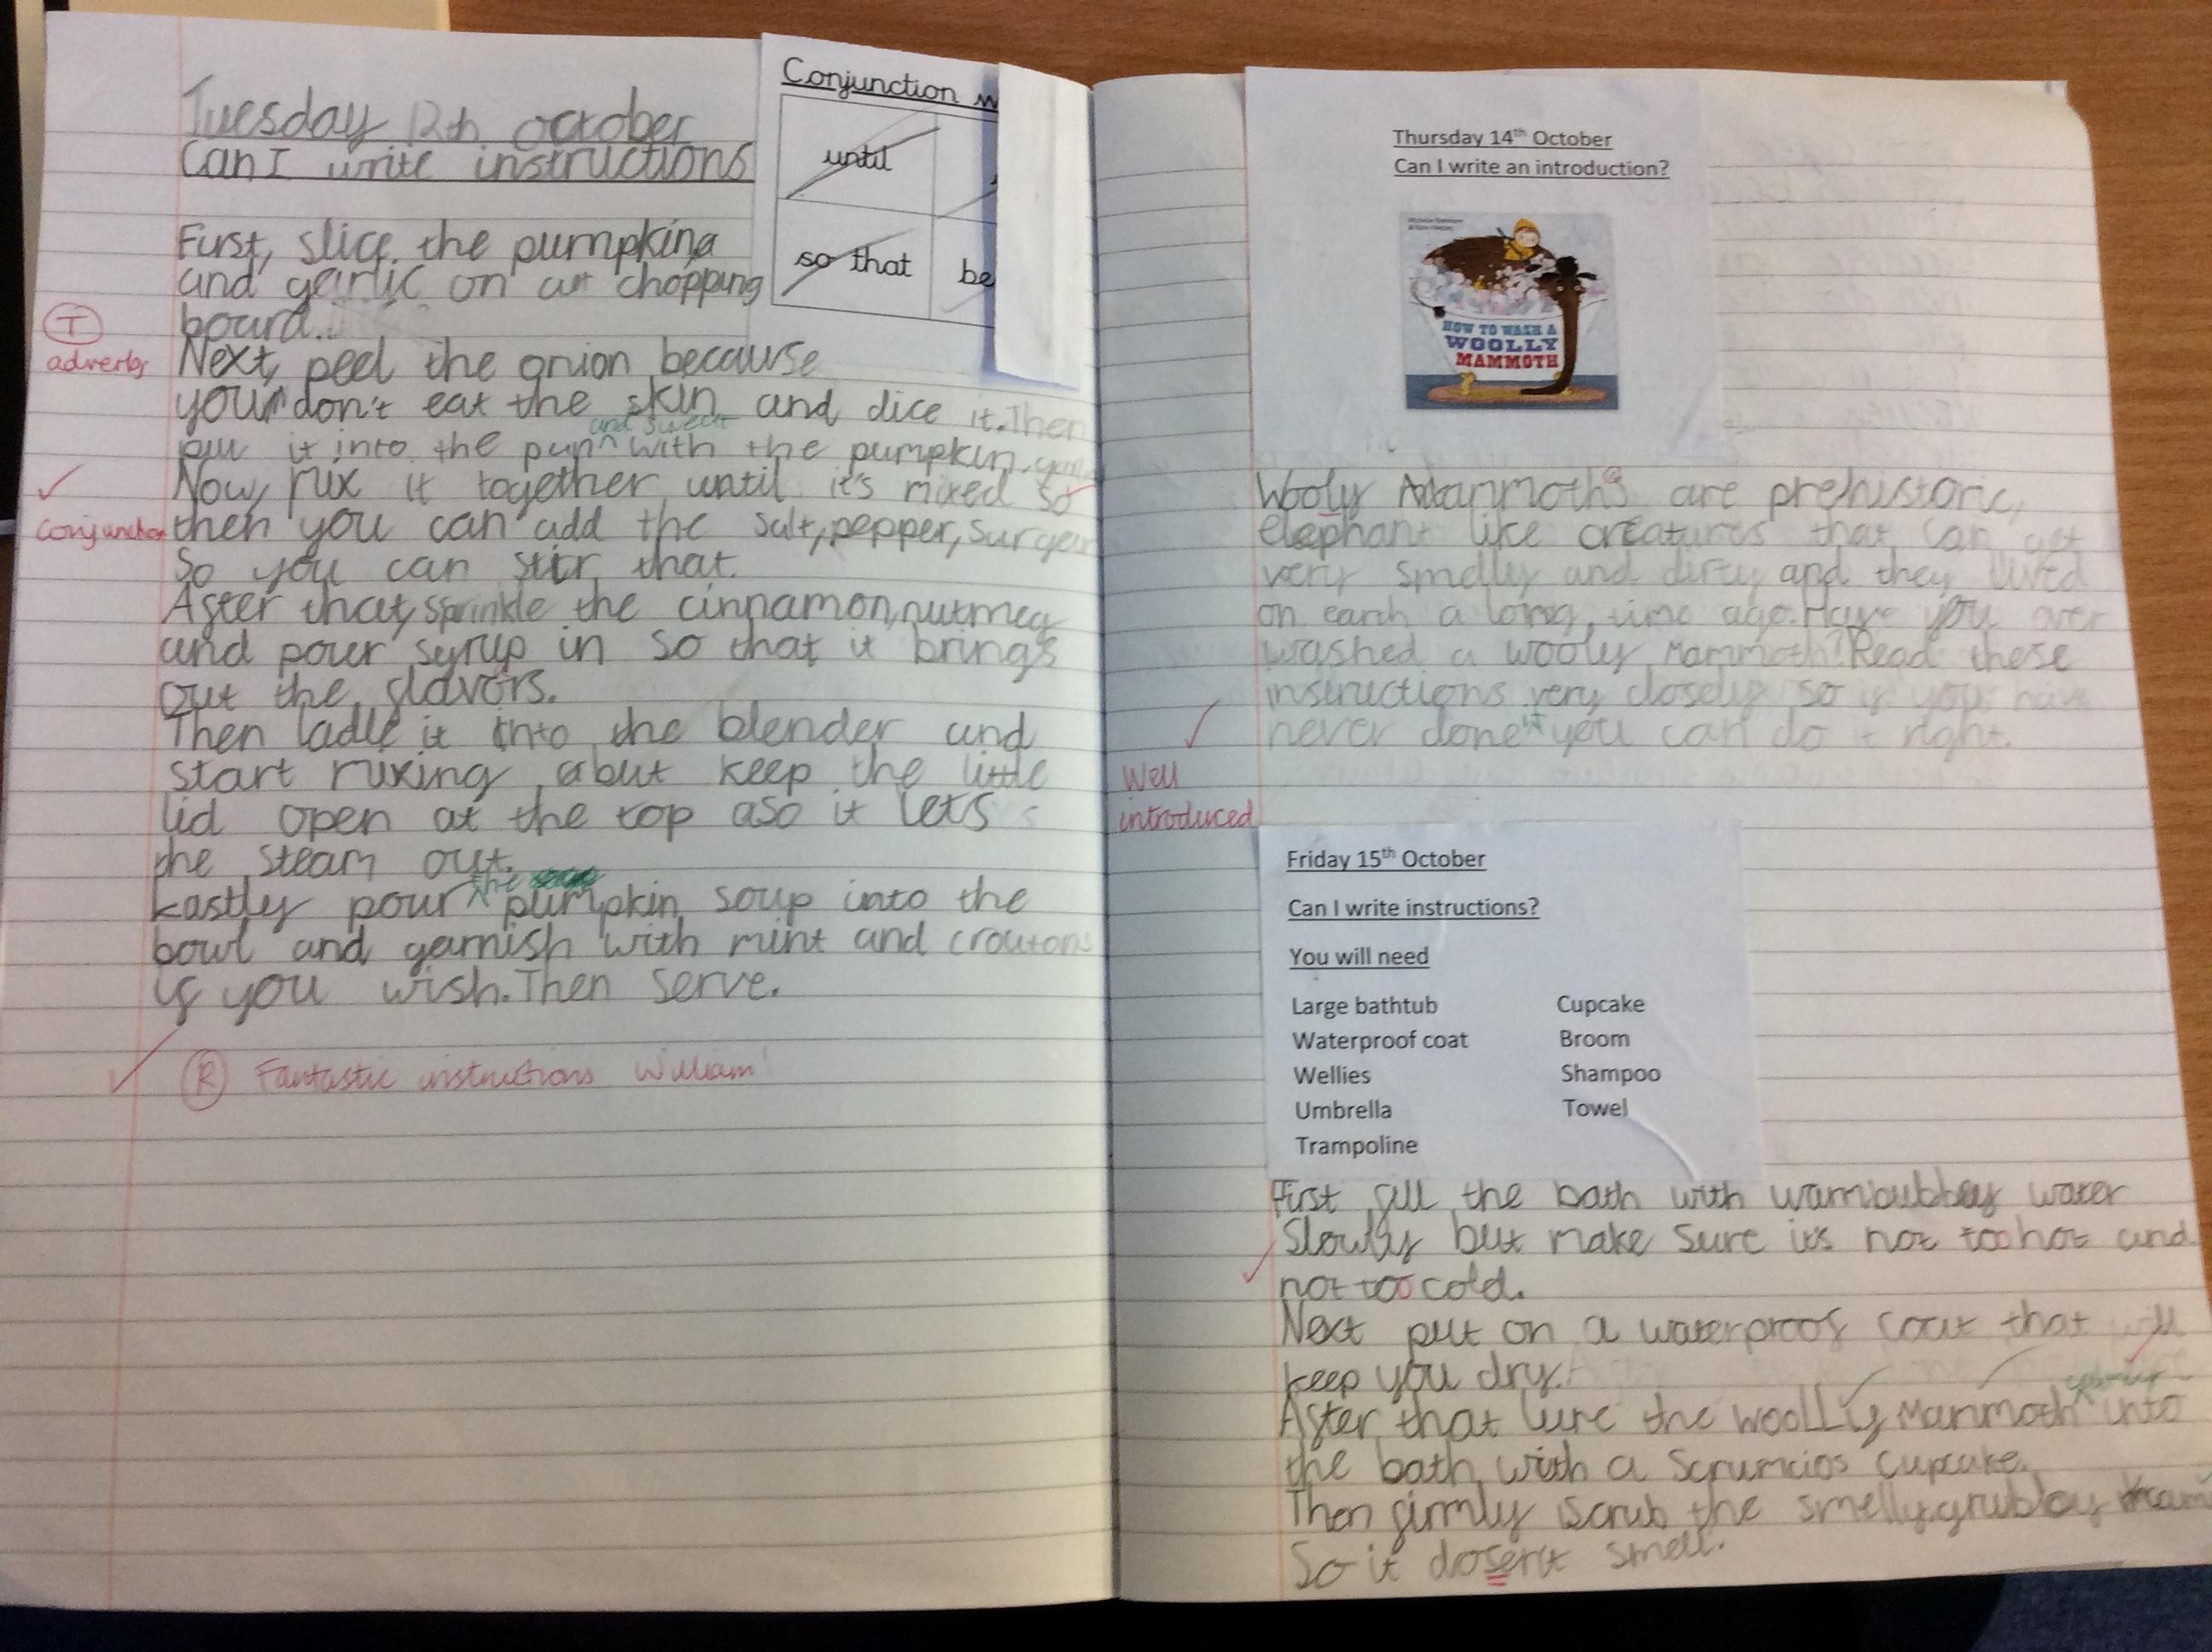 Tuesday 12th october
Can I write instructions
Conjunction
until
so that
be
First, slice the pumpkin
and garlic on a chopping
board.
T
adverbs
Next, peel the onion because
you don't eat the skin and dice it. Then
and sweat
put it into the pan with the pumpkin.
Now, mix it together until it's mixed so
conjunction
then you can add the salt, pepper,
So you can stir that.
After that, sprinkle the cinnamon, nutmeg
and pour syrup in so that it brings
out the flavors.
Then ladle it into the blender and
start mixing but keep the little
lid open at the top so it lets
the steam out.
the
Lastly pour pumpkin soup into the
bowl and garnish with mint and croutons
if you wish. Then serve.
R Fantastic instructions William!
Thursday 14th October
Can I write an introduction?
HOW TO WASH A
WOOLLY
MAMMOTH
Wooly Mammoths are prehistoric,
elephant like creatures that can get
very smelly and dirty and they lived
on earth a long time ago. Have you ever
washed a wooly Mammoth? Read these
instructions very closely so if you have
never done it you can do it right.
Well
introduced
Friday 15th October
Can I write instructions?
You will need
Large bathtub Cupcake
Waterproof coat Broom
Wellies Shampoo
Umbrella Towel
Trampoline
First fill the bath with warm bubbley water
Slowly but make sure it's not too hot and
not too cold.
Next put on a waterproof coat that will
keep you dry.
After that lure the woolly Mammoth into
the bath with a Scrumcios cupcake.
Then firmly scrub the smelly, grubby
So it dosen't smell.